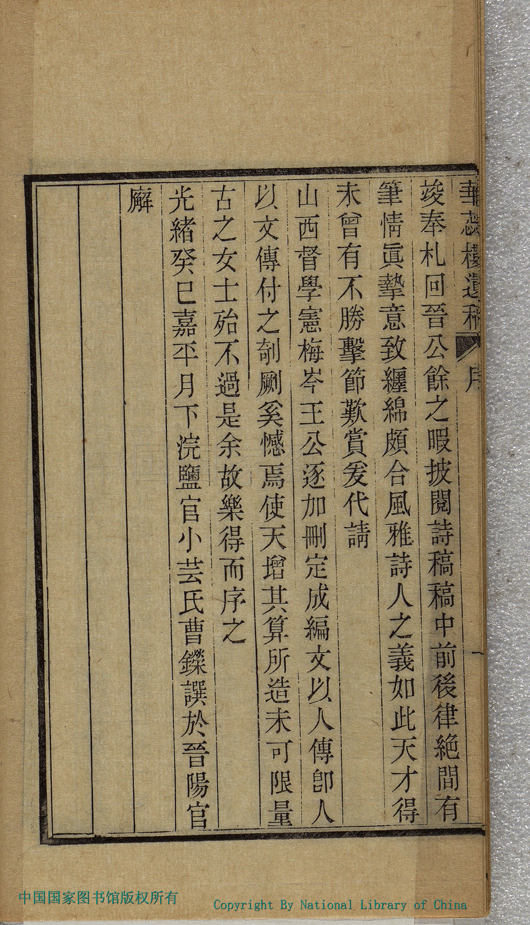 華蕊樓遺稿 序
竣奉札回晉公餘之暇披閱詩稿稿中前後律絕間有
筆情眞摯意致纏綿頗合風雅詩人之義如此天才得
未曾有不勝擊節歎賞爰代請
山西督學憲梅岑王公逐加刪定成編文以人傳卽人
以文傳付之剞劂奚憾焉使天增其算所造未可限量
古之女士殆不過是余故樂得而序之
光緒癸巳嘉平月下浣鹽官小芸氏曹鑅譔於晉陽官
廨
一
中国国家图书馆版权所有
Copyright By National Library of China